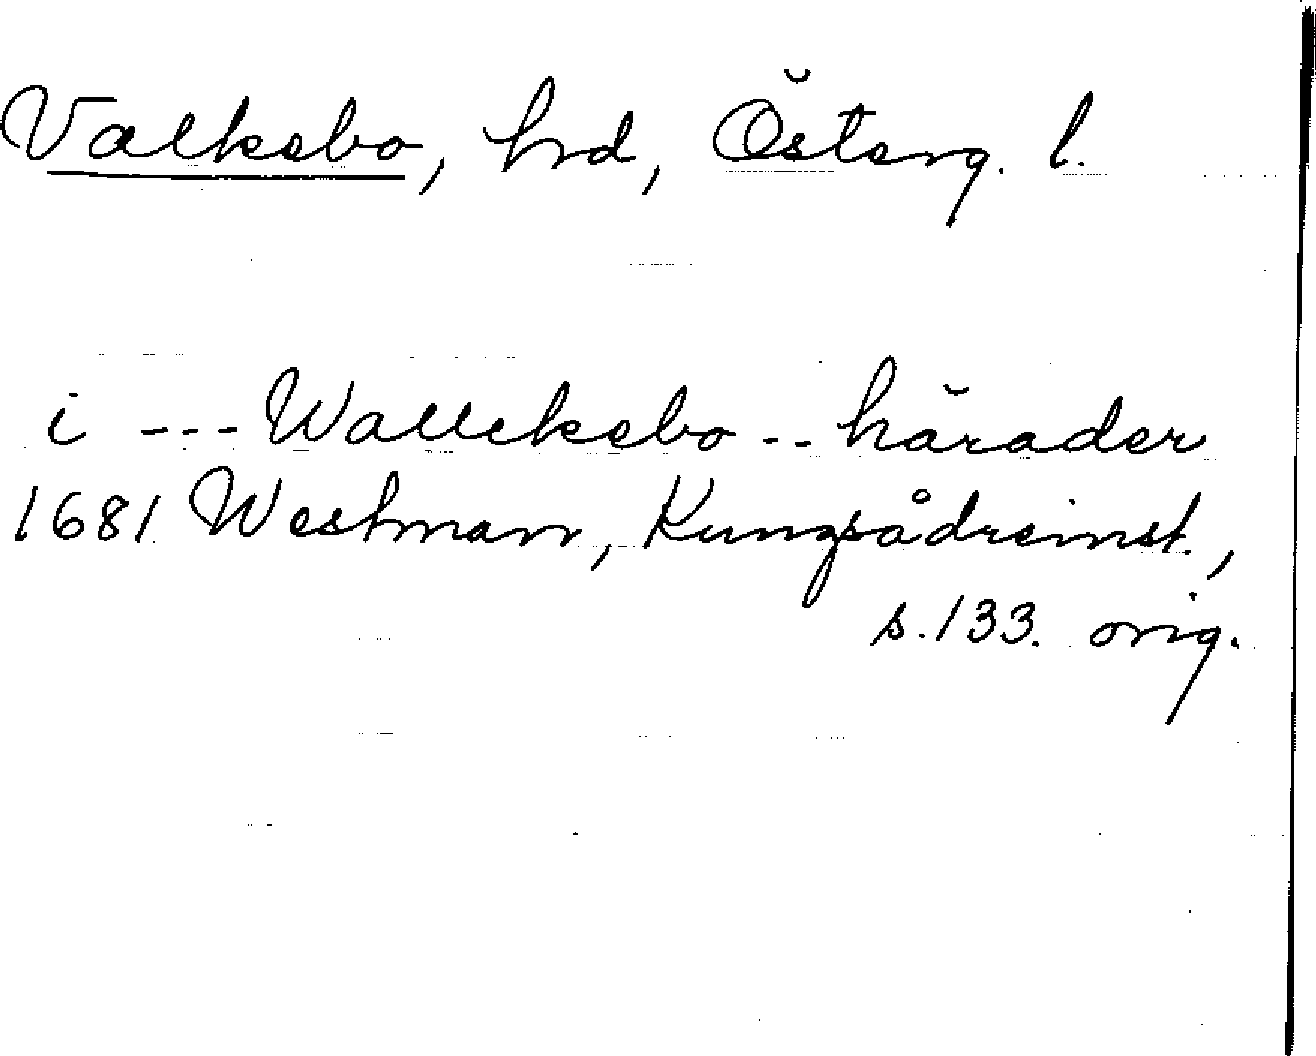 Valkebo, hrd, Österg. l.
i --- Wallekebo -- härader
1681 Westman, Kungsådreinst.,
s. 133. orig.